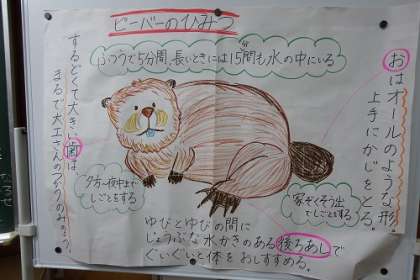 ビーバーのひみつ
ふつうで5分間、長いときには15分間も水の中にいる
おはオールのような形。
上手にかじをとる。
するどくて大きい歯は
まるで大工さんのつかうのみのよう。
夕方〜夜中まで
しごとをする
家ぞくそう出
でしごとをする
ゆびとゆびの間に
じょうぶな水かきのある後ろあしで
ぐいぐいと体をおしすすめる。